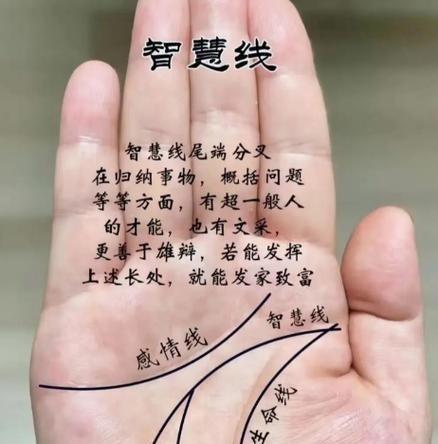 智慧线
智慧线尾端分叉
在归纳事物，概括问题
等等方面，有超一般人
的才能，也有文采，
更善于雄辩，若能发挥
上述长处，就能发家致富
感情线
智慧线
生命线